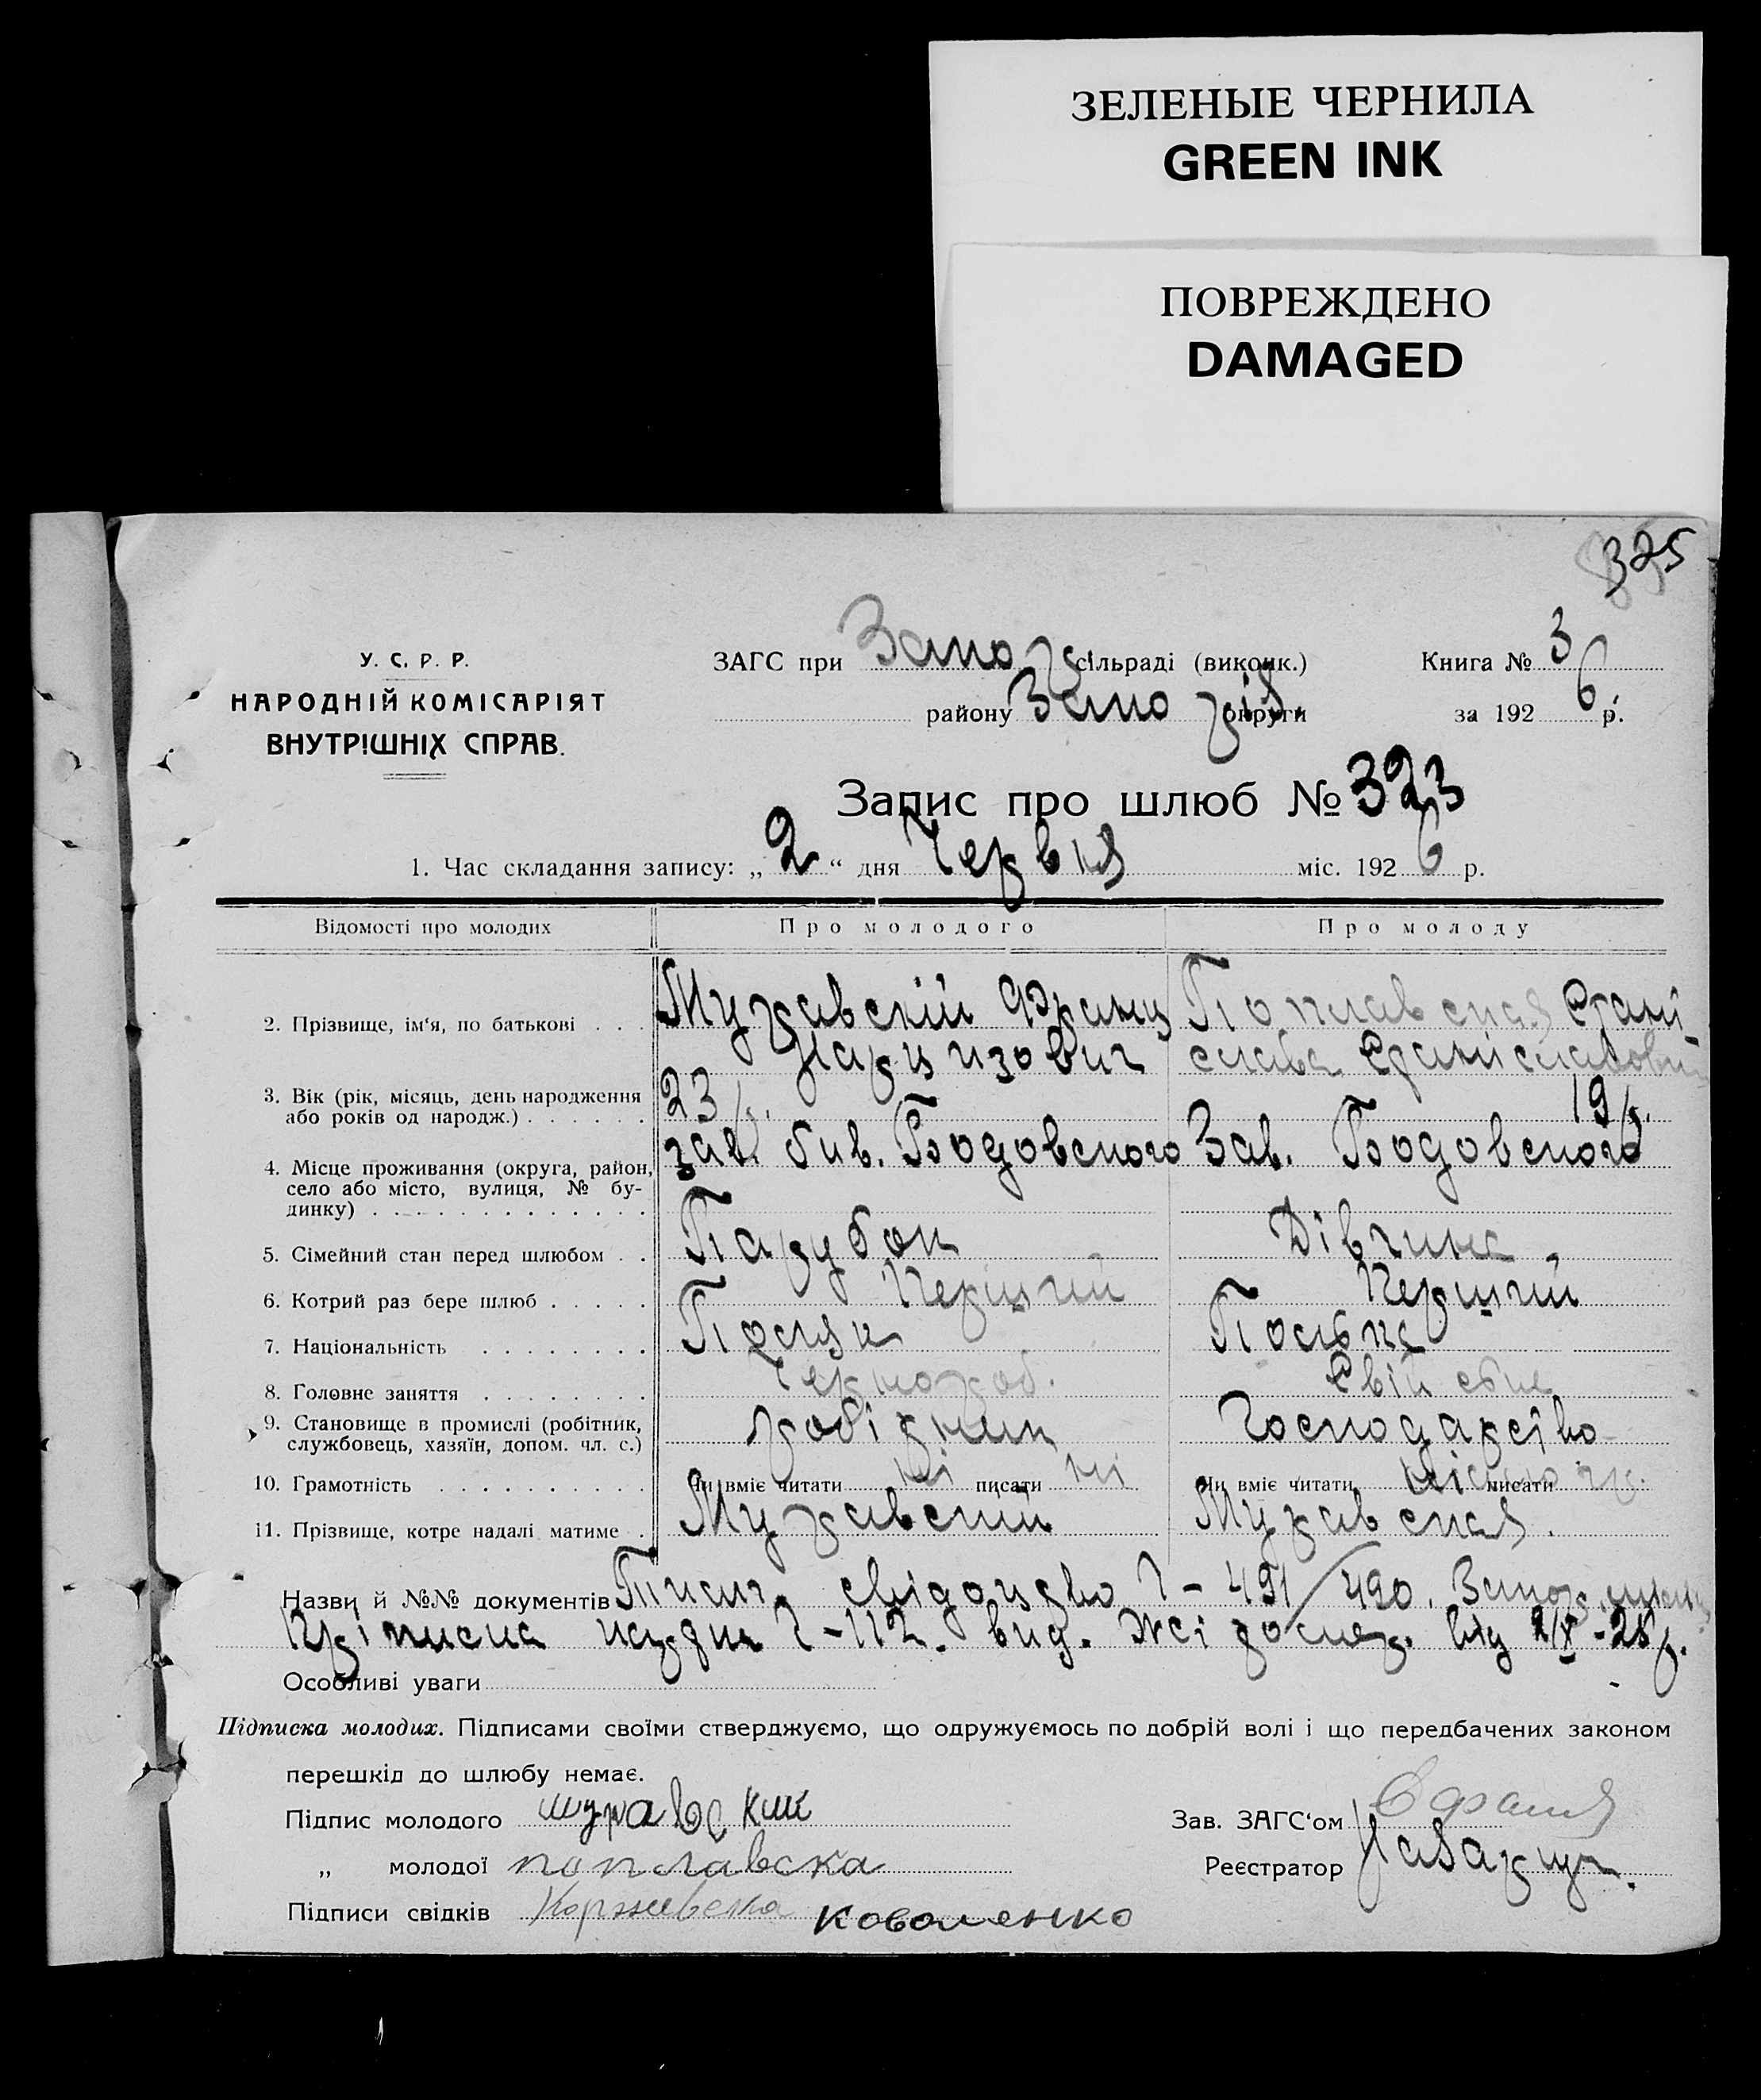 ЗЕЛЕНЫЕ ЧЕРНИЛА
GREEN INK
ПОВРЕЖДЕНО
DAMAGED
325
У. С. Р. Р.
НАРОДНІЙ КОМІСАРІЯТ
ВНУТРІШНІХ СПРАВ.
ЗАГС при Запор сільраді (виконк.)
району Запоріз. округи
Книга № 3
за 1926 р.
Запис про шлюб № 323
1. Час складання запису: „2“ дня Червня міс. 1926 р.
Відомості про молодих Про молодого Про молоду
2. Прізвище, ім‘я, по батькові Муравскій Франц Поплавская Стані
Нарцизович слава Станіславовн
3. Вік (рік, місяць, день народження 23 р. 19 р.
або років од народж.)
4. Місце проживання (округа, район, зав. бив. Бодовского Зав. Бодовского
село або місто, вулиця, № бу-
динку)
5. Сімейний стан перед шлюбом Парубок Дівчина
6. Котрий раз бере шлюб Перший Перший
7. Національність Поляк Полька
8. Головне заняття Чернороб. Свій
9. Становище в промислі (робітник, робітник Господарство
службовець, хазяїн, допом. чл. с.)
10. Грамотність Чи вміє читати ні писати ні Чи вміє читати писати
11. Прізвище, котре надалі матиме Муравский Муравская.
Назви й №№ документів свідоцтво 491/490.
Кріписна 112. вид. від
Особливі уваги
Підписка молодих. Підписами своїми стверджуємо, що одружуємось по добрій волі і що передбачених законом
перешкід до шлюбу немає.
Підпис молодого муравский
„ молодої поплавска
Підписи свідків Коржевска Коваленко
Зав. ЗАГС‘ом
Реєстратор